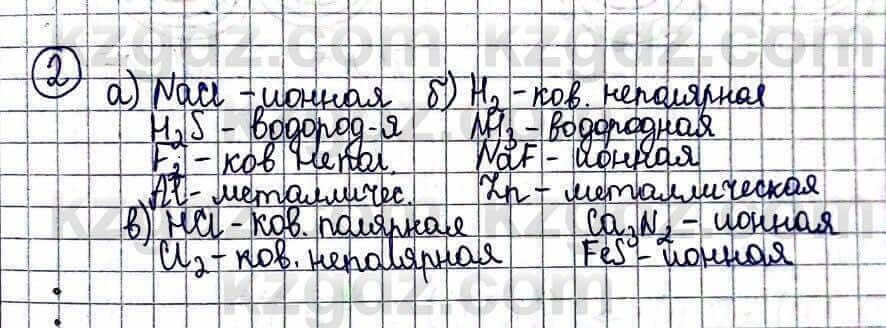 2
а) NaCl - ионная б) H₂ - ков. неполярная
H₂S - водород-я NH₃ - водородная
F₂ - ков непол. NaF - ионная
Al - металличес. Zn - металлическая
в) HCl - ков. полярная Ca₃N₂ - ионная
Cl₂ - ков. неполярная FeS - ионная
kzgdz.com